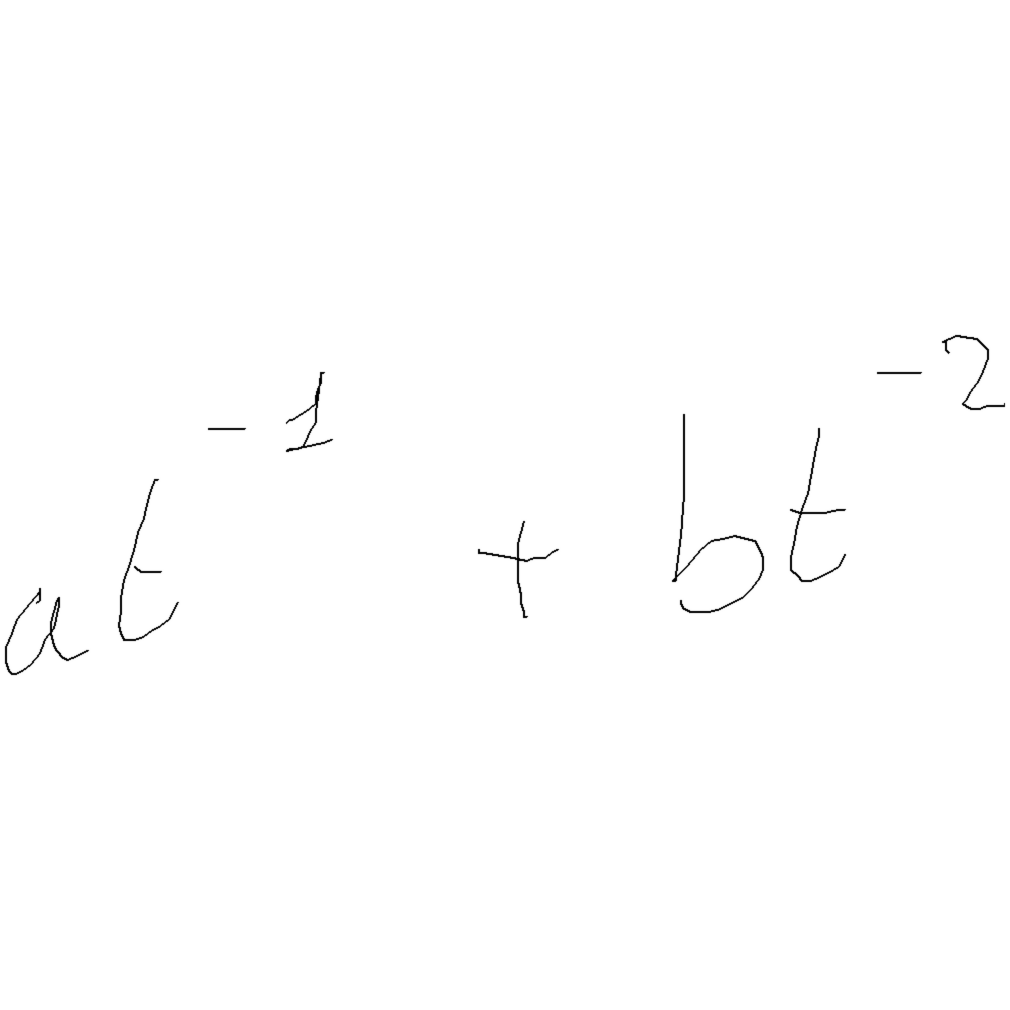 at^{-1} + bt^{-2}